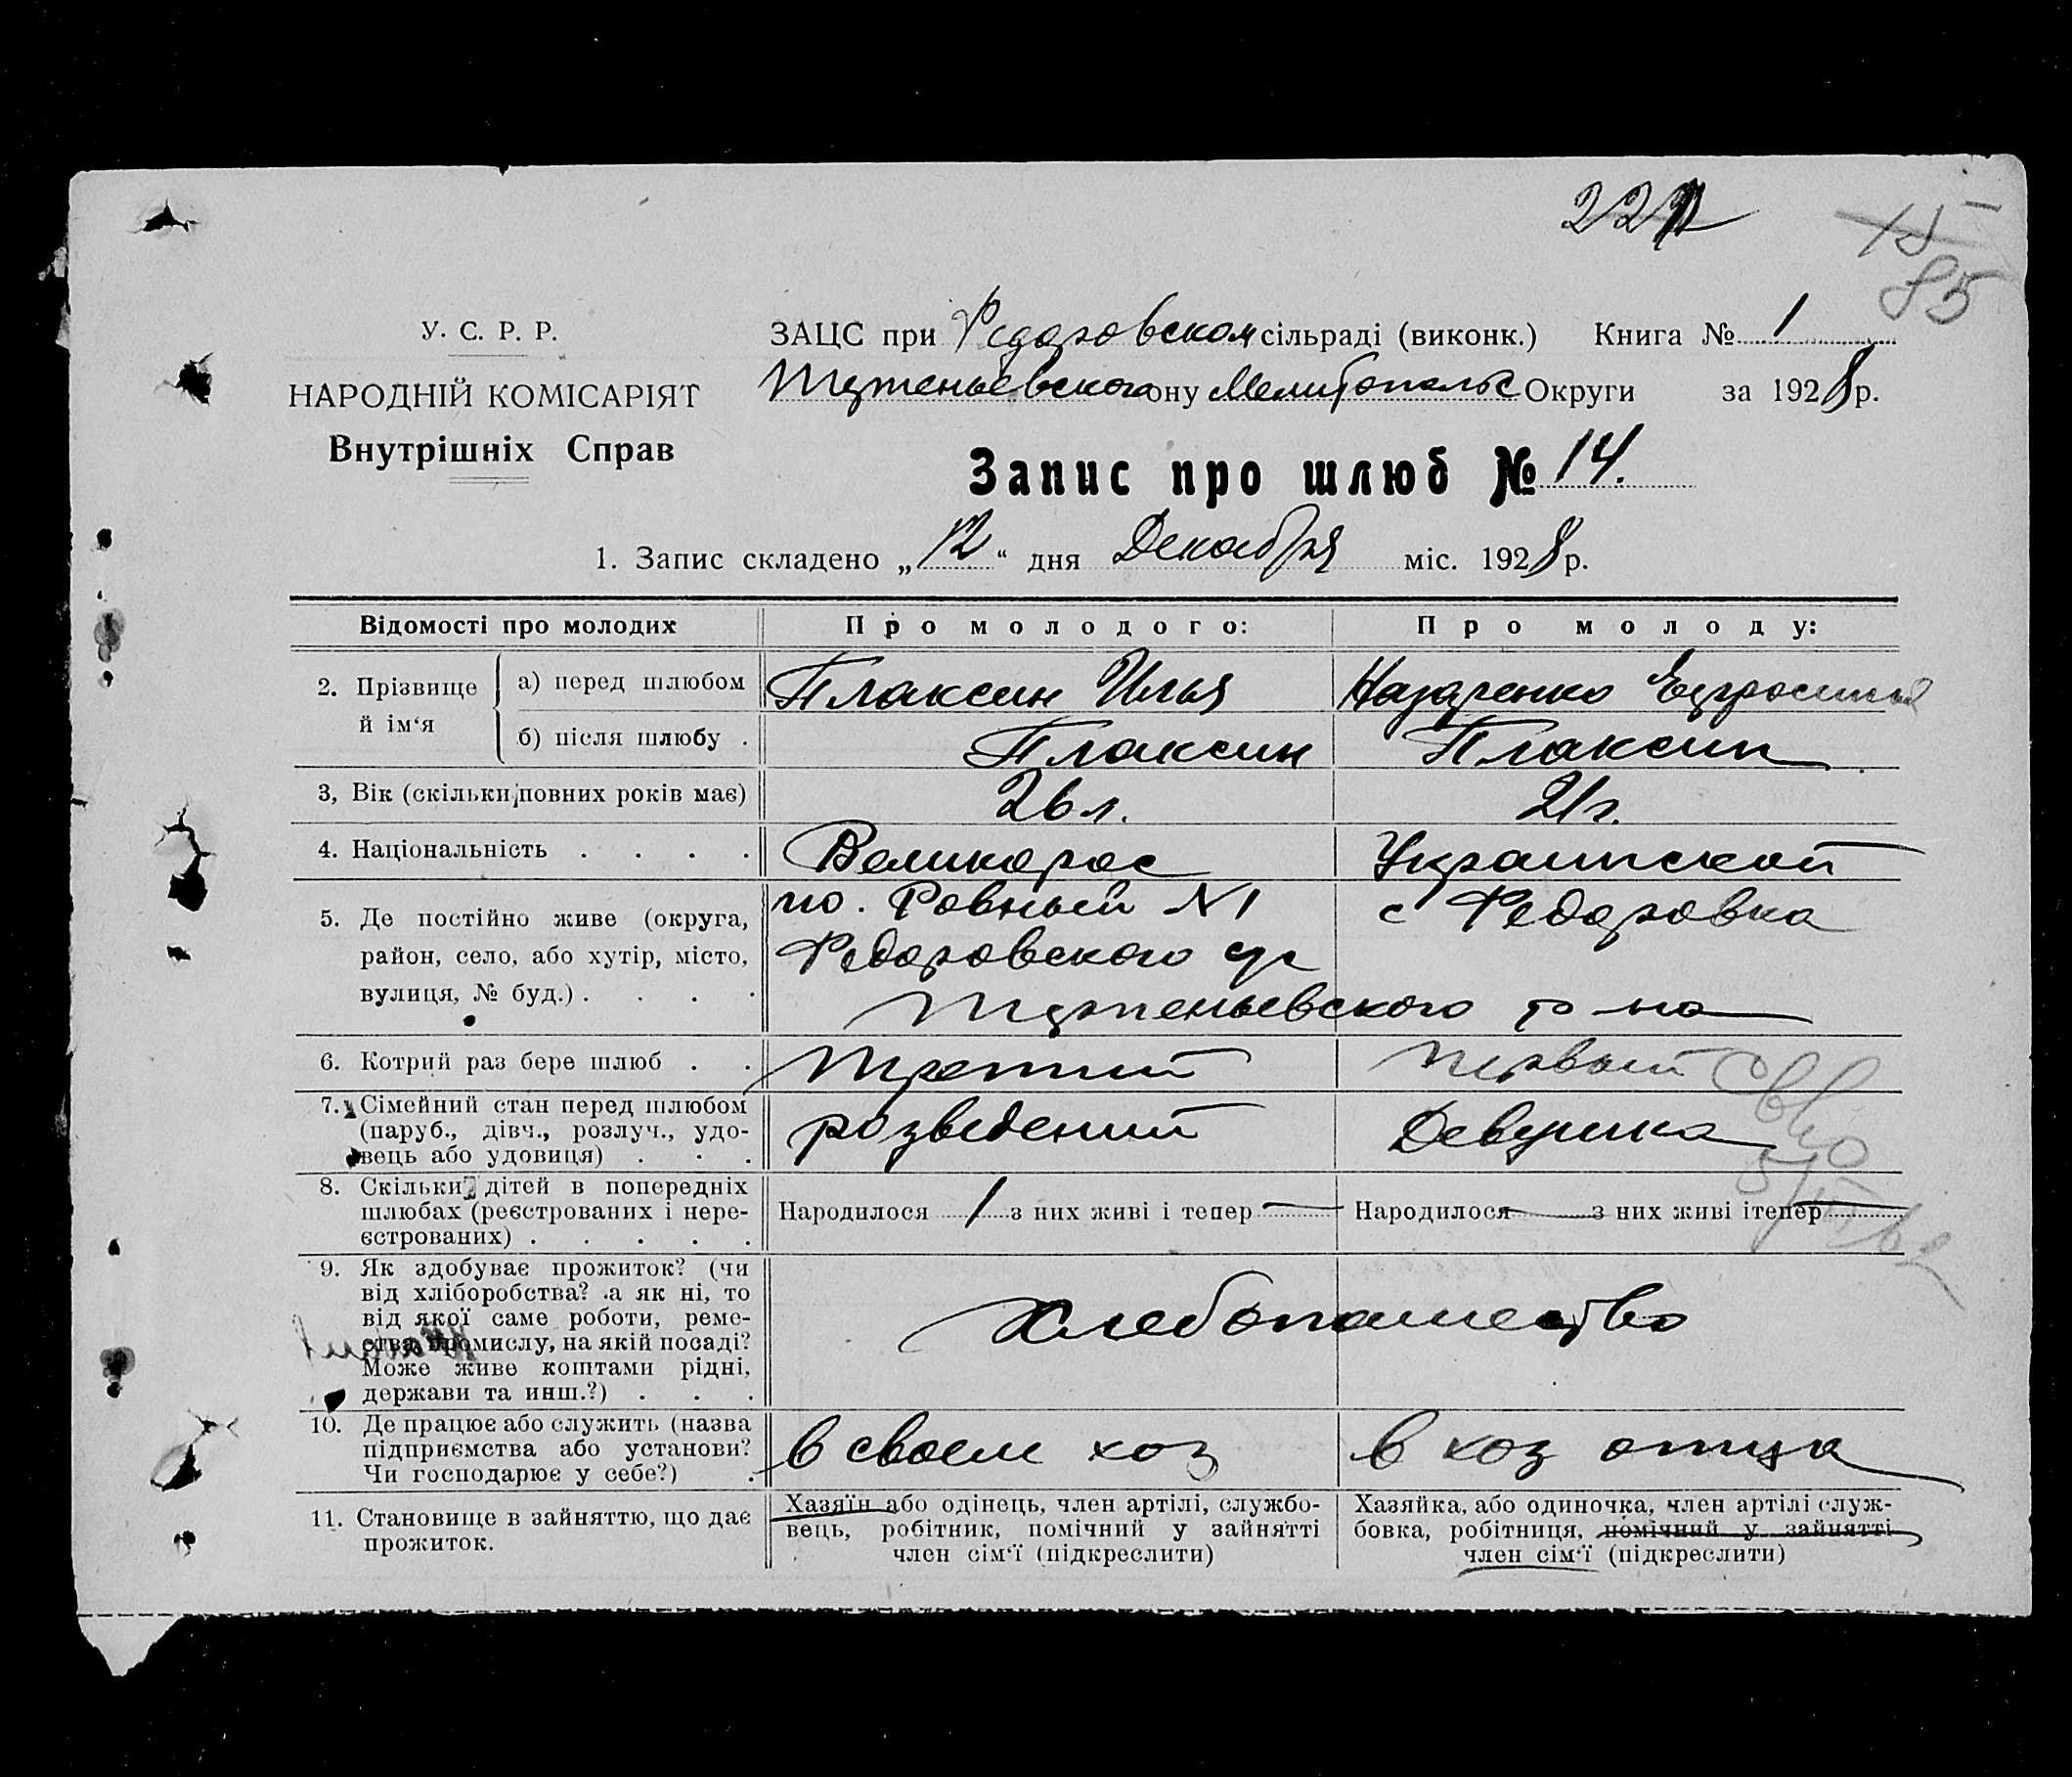 222
15
85
У. С. Р. Р.
НАРОДНІЙ КОМІСАРІЯТ
Внутрішніх Справ
ЗАЦС при Федоровском сільраді (виконк.) Книга № 1
ону Мелитопольс Округи за 1928 р.
Запис про шлюб № 14.
1. Запис складено „12“ дня Декабря міс. 1928 р.
Відомості про молодих Про молодого: Про молоду:
2. Прізвище й ім‘я а) перед шлюбом Плаксин Илья Назаренко
б) після шлюбу . Плаксин Плаксин
3, Вік (скільки повних років має) 26 л. 21 г.
4. Національність . . . . Великорос Украинской
5. Де постійно живе (округа,
район, село, або хутір, місто,
вулиця, № буд.) . . . .
Ровный №1
Федоровского с/с
р-на
с Федоровка
6. Котрий раз бере шлюб . . третий первый
7. Сімейний стан перед шлюбом
(паруб., дівч., розлуч., удо-
вець або удовиця) . . .
розведений Девушка
8. Скільки дітей в попередніх
шлюбах (реєстрованих і нере-
єстрованих) . . . . .
Народилося 1 з них живі і тепер — Народилося — з них живі ітепер —
9. Як здобуває прожиток? (чи
від хліборобства? а як ні, то
від якої саме роботи, реме-
ства, промислу, на якій посаді?
Може живе коштами рідні,
держави та инш.?) . . .
Хлебопашество
10. Де працює або служить (назва
підприємства або установи?
Чи господарює у себе?) .
в своем хоз в хоз отца
11. Становище в зайняттю, що дає
прожиток.
Хазяїн або одінець, член артілі, службо-
вець, робітник, помічний у зайнятті
член сім‘ї (підкреслити)
Хазяйка, або одиночка, член артілі служ-
бовка, робітниця, помічний у зайнятті
член сім‘ї (підкреслити)